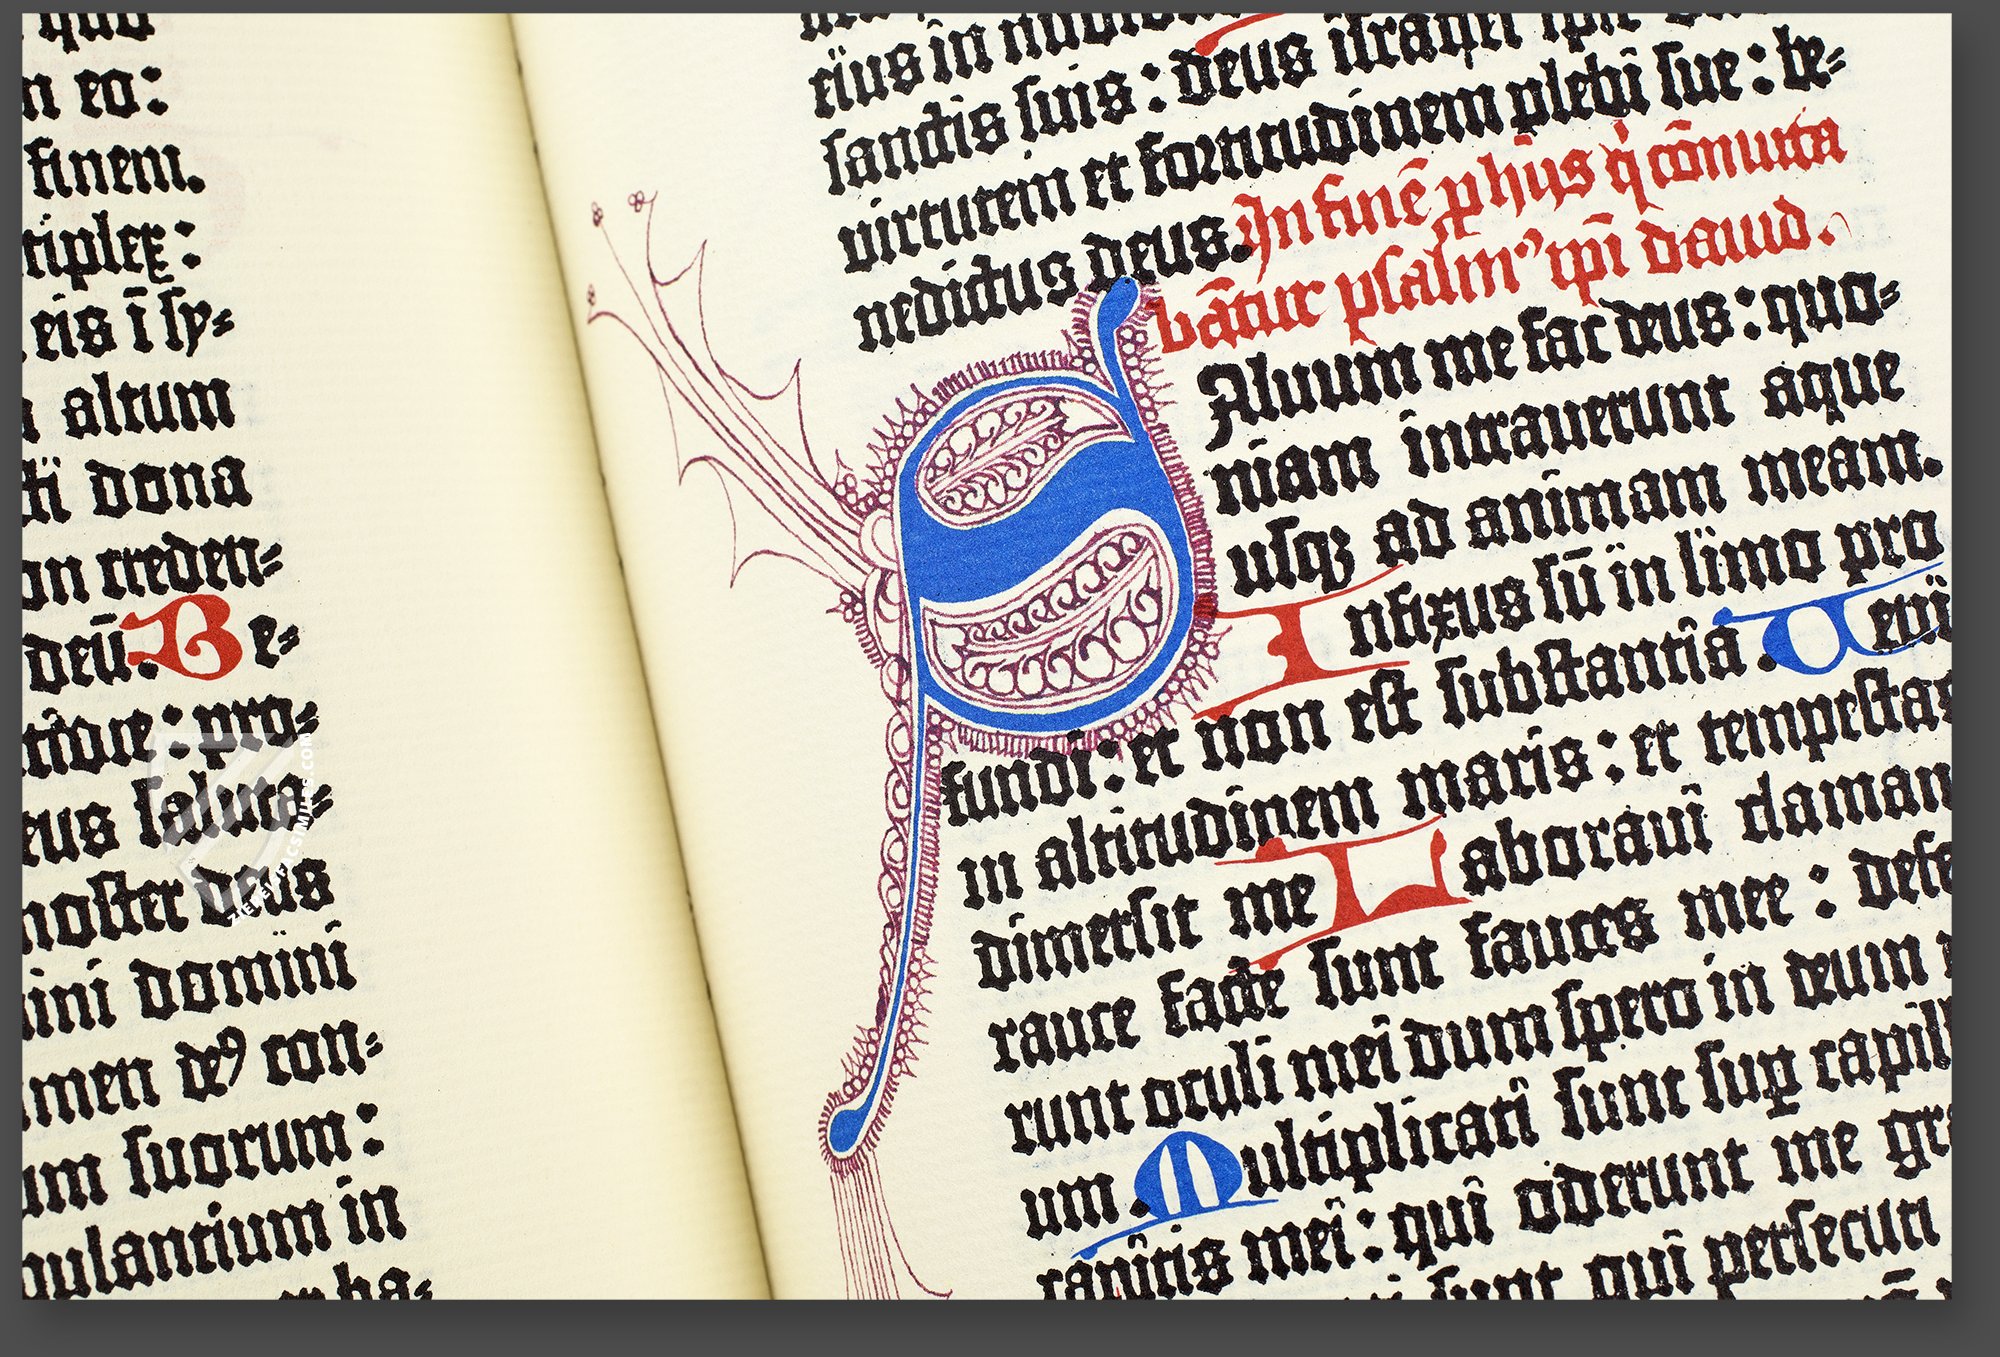 quo
n eo:
finem.
tiplex:
eis ī sy=
altum
dona
on creden=
deū. Be=
tidie: pro=
eus saluta=
noster deus
ini domini
men deꝰ con=
um suorum:
bulantium in
ba=
eius in nubibus
sanctis suis: deus israhel ipse
virtutem et fortitudinem plebi sue: be=
nedictus deus. In finē p hijs q̇ cōmuta
bātur psalmꝰ ip̄i dauid.
Saluum me fac deus: quo=
niam intrauerunt aque
usqꝫ ad animam meam.
Infixus sū in limo pro
fundi: et non est substantia. Veni
in altitudinem maris: et tempestas
dimersit me. Laboraui claman
rauce facte sunt fauces mee: defe
runt oculi mei dum spero in deum
um. Multiplicati sunt suꝑ capill
capitis mei: qui oderunt me gra
sunt qui persecuti
ZIEREIS FACSIMILES.COM